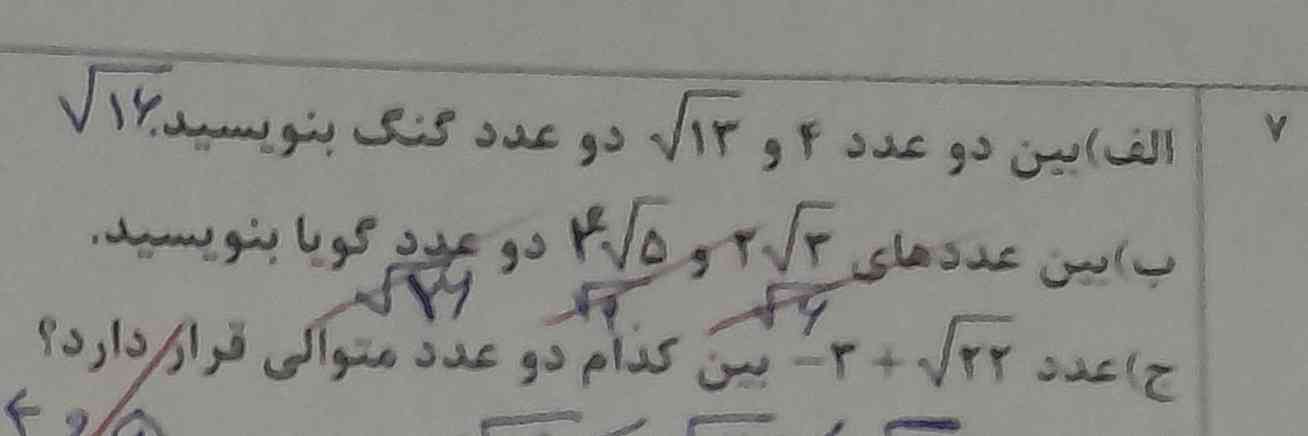 ۷
الف)بین دو عدد ۴ و √۱۳ دو عدد گنگ بنویسید. √۱۶
ب)بین عددهای ۲√۳ و ۳√۵ دو عدد گویا بنویسید.
ج)عدد √۲۲ + ۳− بین کدام دو عدد متوالی قرار دارد؟